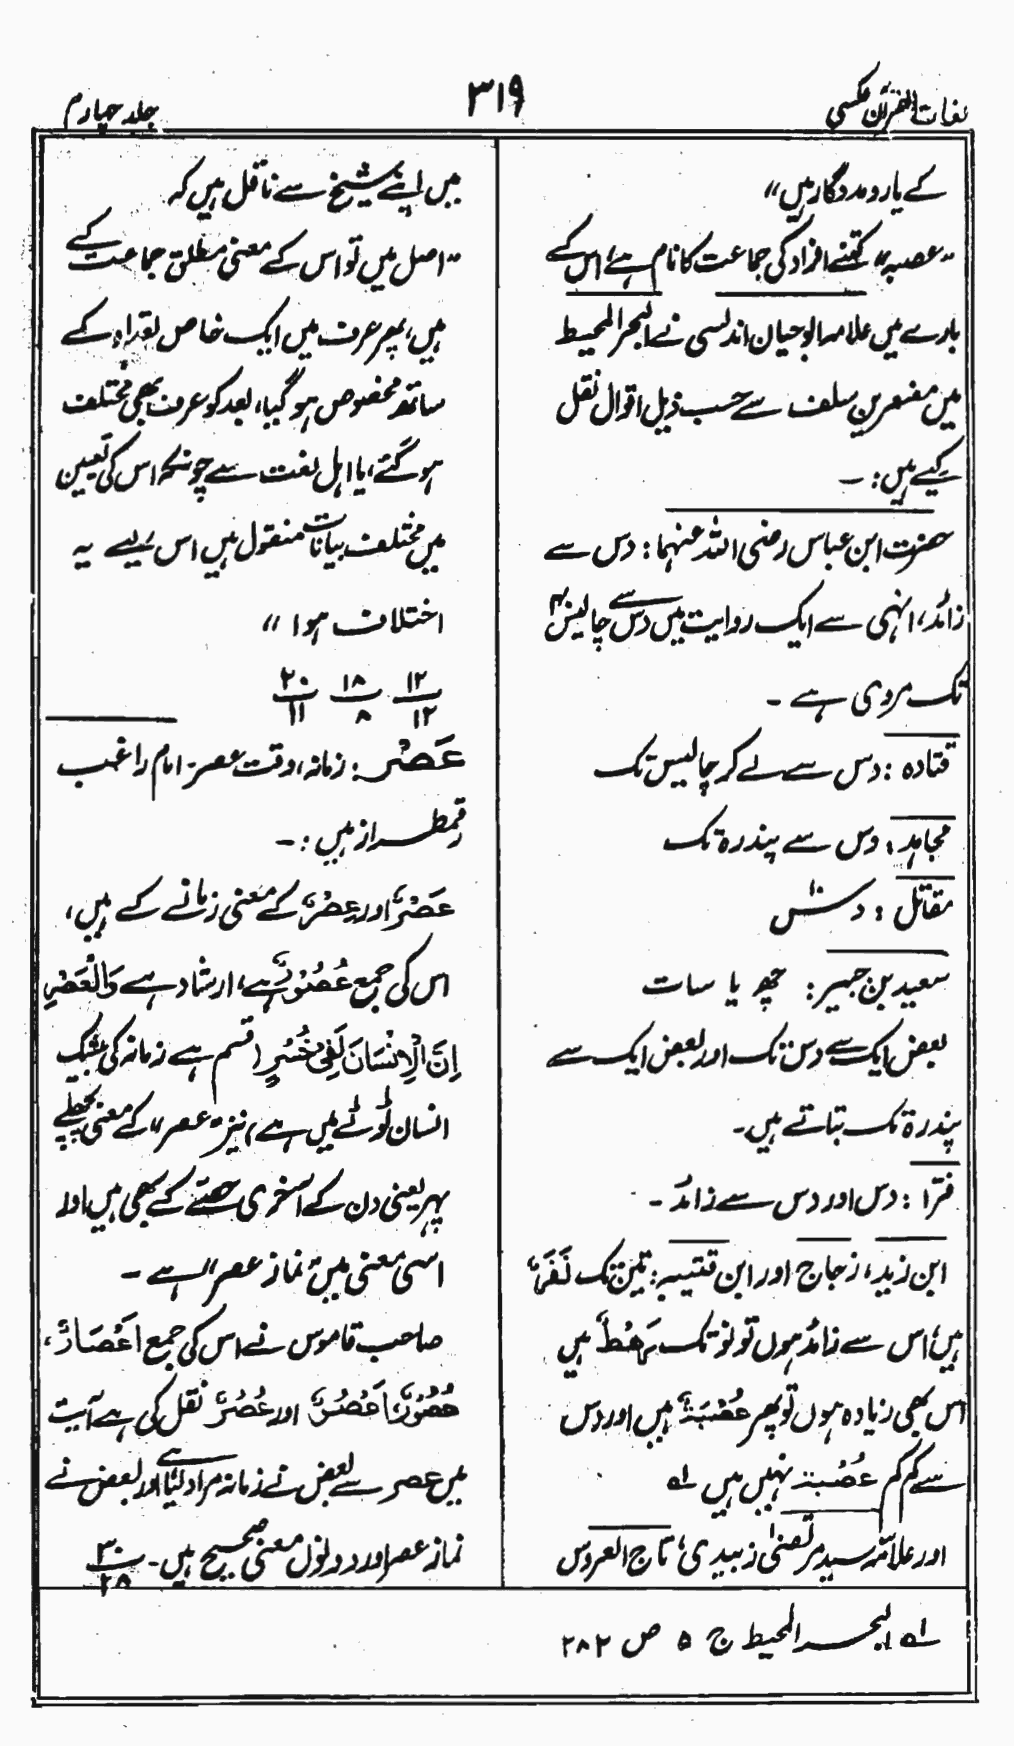 لغات القرآن عکسی
۳۱۹
جلد چہارم
کے یار و مددگار ہیں"
"عصبہ" کتنے افراد کی جماعت کا نام ہے؟ اس کے
بارے میں علامہ ابوحیان اندلسی نے البحر المحیط
میں مفسرین سلف سے حسب ذیل اقوال نقل
کیے ہیں:۔
حضرت ابن عباس رضی اللہ عنہما: دس سے
زائد، انہی سے ایک روایت میں دس سے چالیس
تک مروی ہے۔
قتادہ: دس سے لے کر چالیس تک
مجاہد: دس سے پندرہ تک
مقاتل: دس۱۰
سعید بن جبیر: چھ یا سات
بعض ایک سے دس تک اور بعض ایک سے
پندرہ تک بتاتے ہیں۔
فرّا: دس اور دس سے زائد۔
ابن زید، زجاج اور ابن قتیبہ: تین تک نَفَرٌ
ہیں، اس سے زائد ہوں تو نو تک رَهْطٌ ہیں
اس بھی زیادہ ہوں تو پھر عُصْبَةٌ ہیں اور دس
سے کم کم عُصْبَة نہیں ہیں لہ
اور علامہ سید مرتضیٰ زبیدی، تاج العروس
میں اپنے شیخ سے ناقل ہیں کہ
"اصل میں تو اس کے معنی مطلق جماعت کے
ہیں، پھر عرف میں ایک خاص تعداد کے
ساتھ مخصوص ہو گیا، بعد کو عرف بھی مختلف
ہو گئے، یا اہل لغت سے چونکہ اس کی تعیین
میں مختلف بیانات منقول ہیں اس لیے یہ
اختلاف ہوا"
۱۲/۱۲ ۱۸/۸ ۲۰/۱۱
عَصْر: زمانہ، وقت عصر۔ امام راغب
رقمطراز ہیں:۔
عَصْرٌ اور عِصْرٌ کے معنی زمانے کے ہیں،
اس کی جمع عُصُوْرٌ ہے، ارشاد ہے وَالْعَصْرِ
اِنَّ الْاِنْسَانَ لَفِیْ خُسْرٍ (قسم ہے زمانہ کی بیشک
انسان ٹوٹے میں ہے) نیز "عصر" کے معنی پچھلے
پہر یعنی دن کے آخری حصّے کے بھی ہیں اور
اسی معنی میں "نماز عصر" ہے۔
صاحب قاموس نے اس کی جمع اَعْصَارٌ،
عُصُوْرٌ، اَعْصُرٌ اور عُصُرٌ نقل کی ہے آیت
میں عصر سے بعض نے زمانہ مراد لیا ہے اور بعض نے
نماز عصر اور دونوں معنی صحیح ہیں۔ ۳۰/۲۸
لہ البحر المحیط ج ۵ ص ۲۸۲